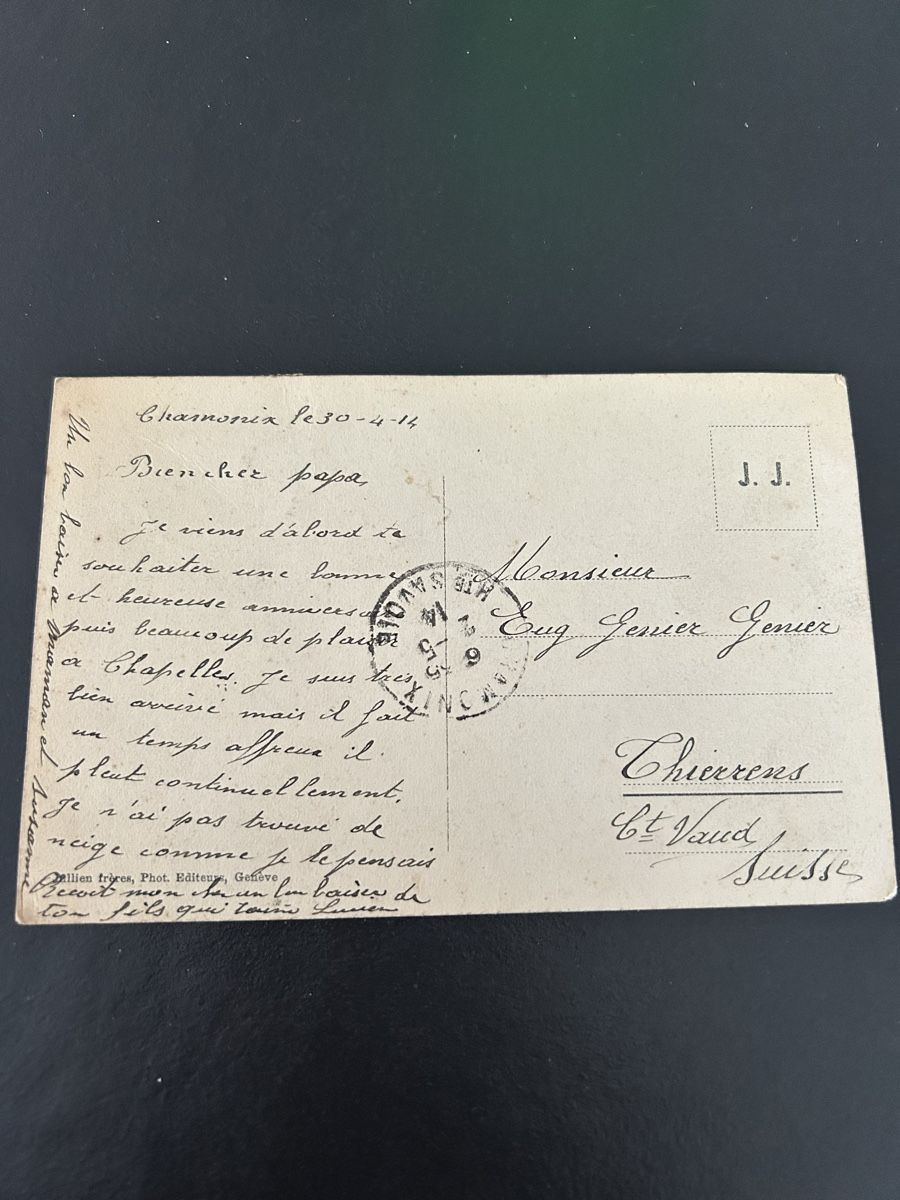 Chamonix le 30-4-14
Bien cher papa,
Je viens d'abord te
souhaiter une bonne
et heureuse anniversaire
puis beaucoup de plaisir
a Chapelles. Je suis très
bien arrivé mais il fait
un temps affreux il
pleut continuellement.
Je n'ai pas trouvé de
neige comme je le pensais
Reçoit mon cher un bon baiser de
ton fils qui t'aime Lucien
Un bon baiser a maman et Susanne
Jullien frères, Phot. Editeurs, Genève
CHAMONIX
HTE SAVOIE
6
5
14
J. J.
Monsieur
Eug Genier Genier
Thierrens
Ct Vaud
Suisse